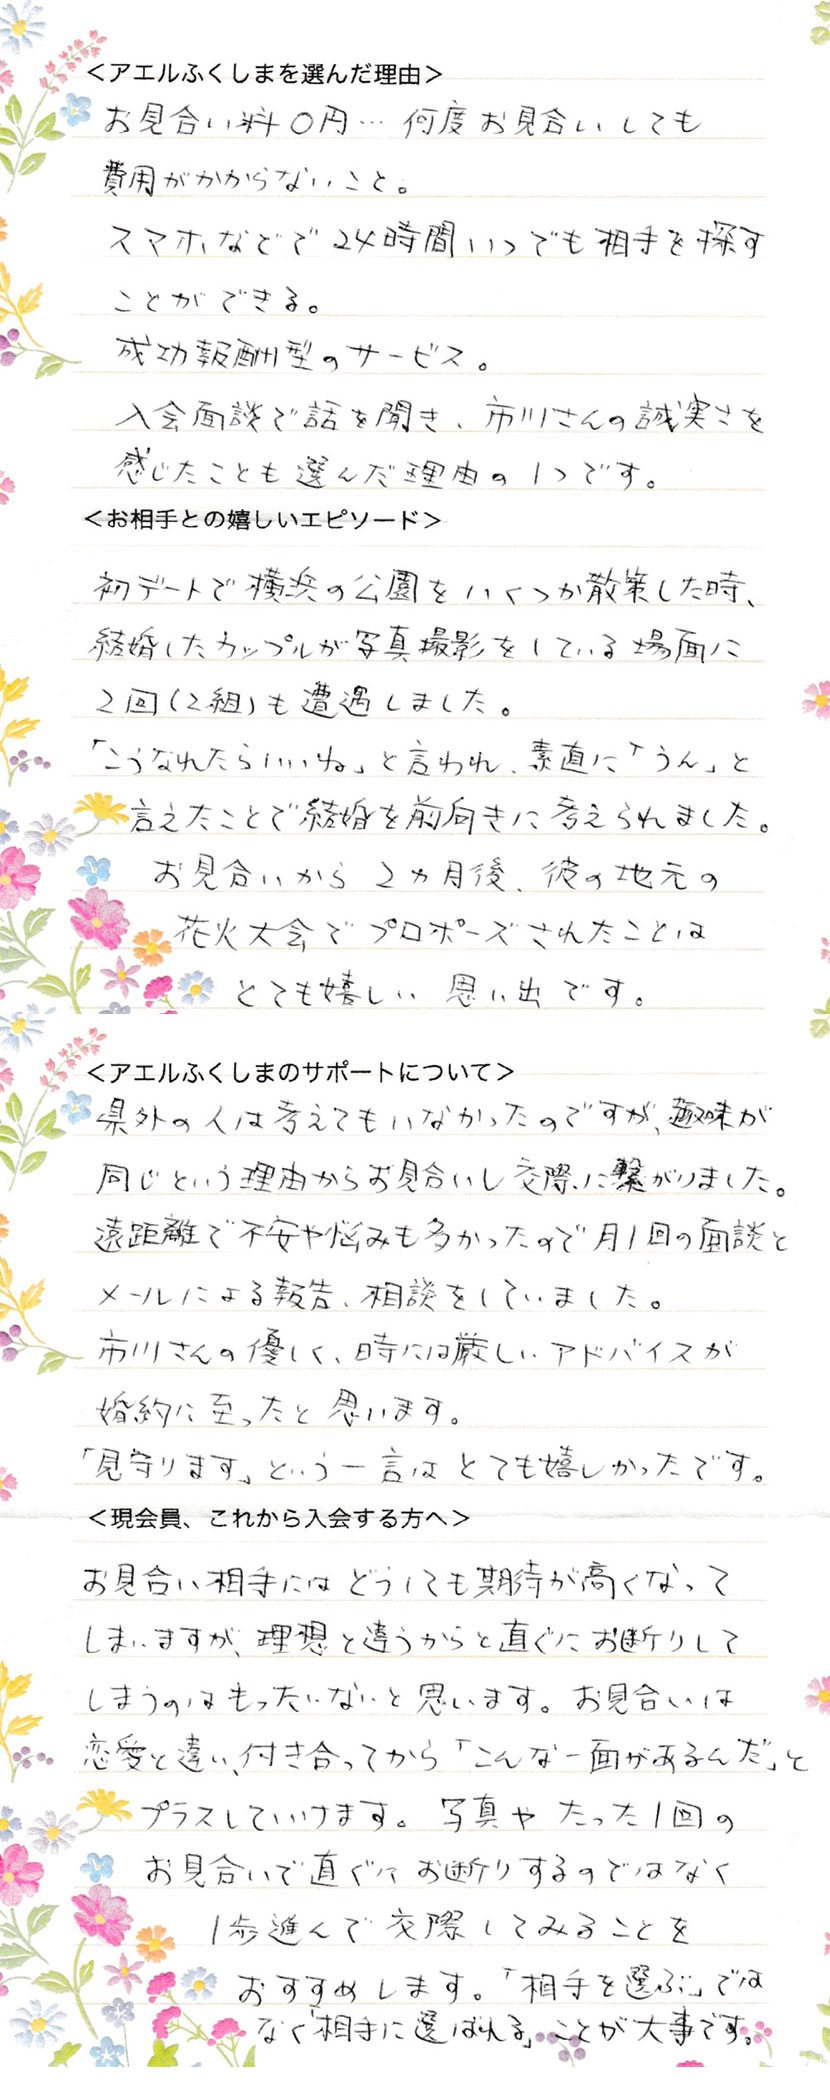 ＜アエルふくしまを選んだ理由＞
お見合い料０円…何度お見合いしても
費用がかからないこと。
スマホなどで24時間いつでも相手を探す
ことができる。
成功報酬型のサービス。
入会面談で話を聞き、市川さんの誠実さを
感じたことも選んだ理由の１つです。
＜お相手との嬉しいエピソード＞
初デートで横浜の公園をいくつか散策した時、
結婚したカップルが写真撮影をしている場面に
２回(２組)も遭遇しました。
「こうなれたらいいね」と言われ、素直に「うん」と
言えたことで結婚を前向きに考えられました。
お見合いから２カ月後、彼の地元の
花火大会でプロポーズされたことは
とても嬉しい思い出です。
＜アエルふくしまのサポートについて＞
県外の人は考えてもいなかったのですが、趣味が
同じという理由からお見合いし交際に繋がりました。
遠距離で不安や悩みも多かったので月１回の面談と
メールによる報告、相談をしていました。
市川さんの優しく、時には厳しいアドバイスが
婚約に至ったと思います。
「見守ります」という一言はとても嬉しかったです。
＜現会員、これから入会する方へ＞
お見合い相手にはどうしても期待が高くなって
しまいますが、理想と違うからと直ぐにお断りして
しまうのはもったいないと思います。お見合いは
恋愛と違い、付き合ってから「こんな一面があるんだ」と
プラスしていけます。写真やたった１回の
お見合いで直ぐにお断りするのではなく
１歩進んで交際してみることを
おすすめします。「相手を選ぶ」では
なく「相手に選ばれる」ことが大事です。